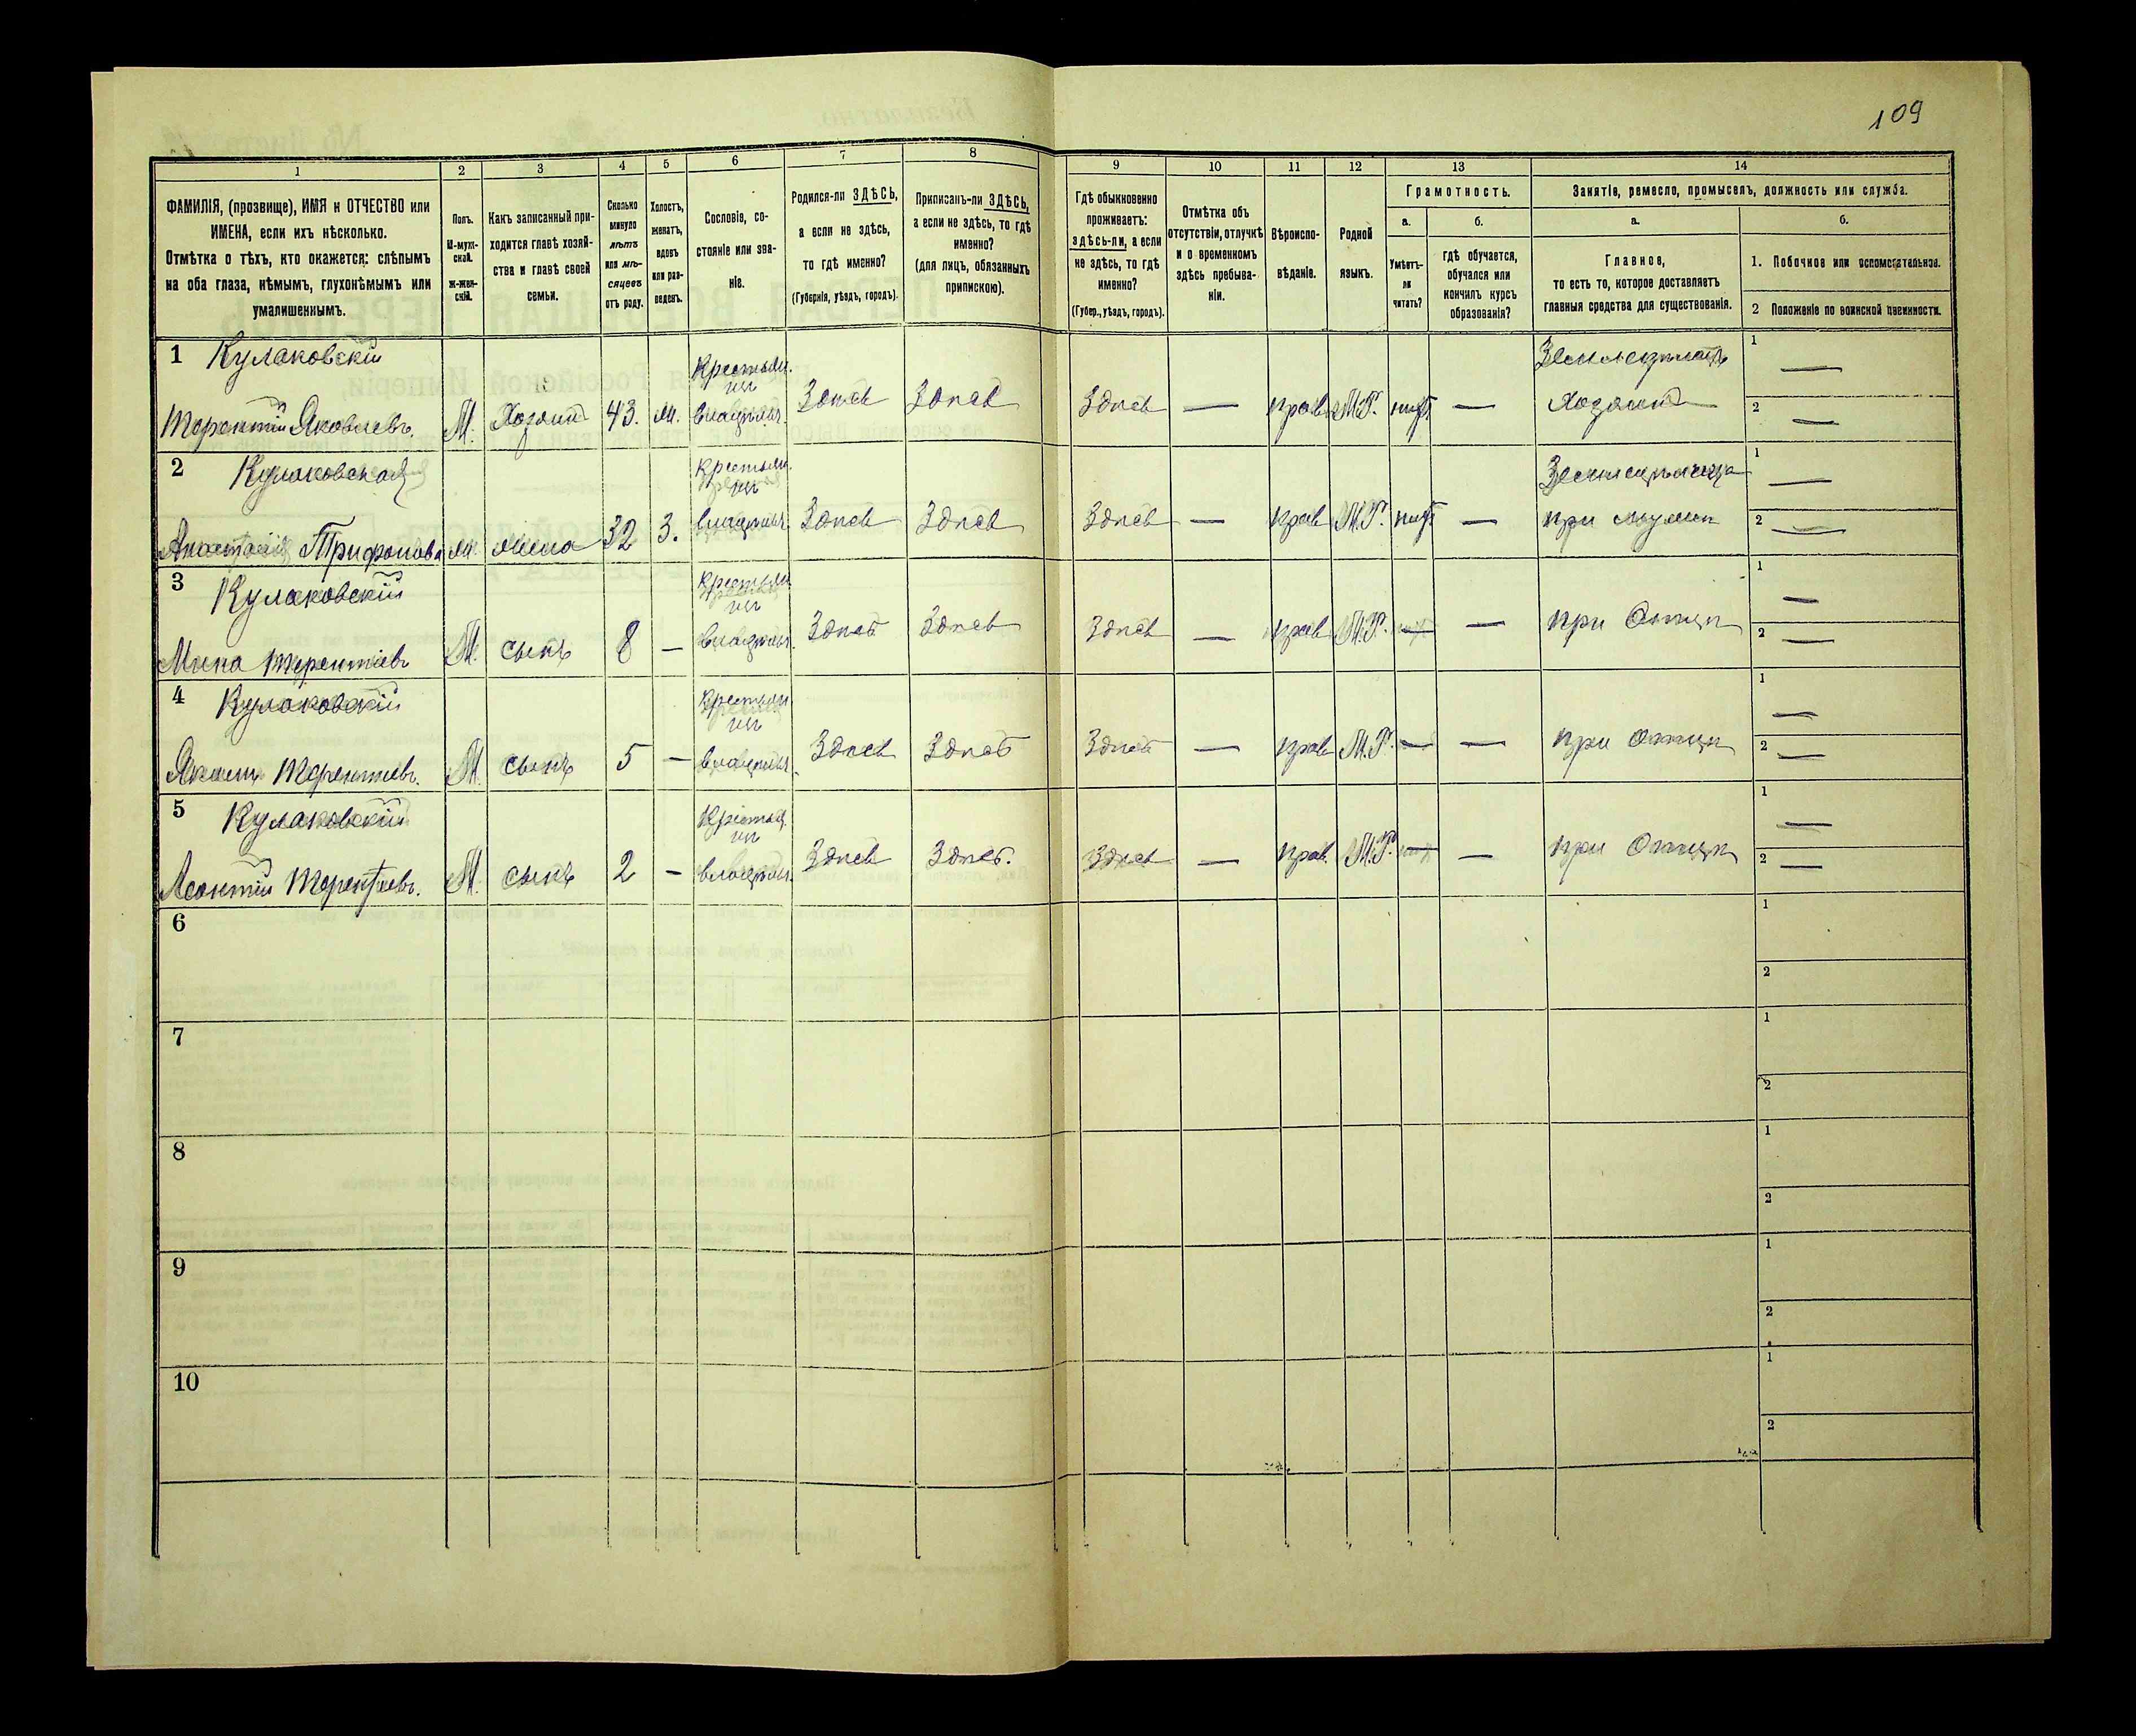 109
1
2
3
4
5
6
7
8
9
10
11
12
13
14
ФАМИЛІЯ, (прозвище), ИМЯ и ОТЧЕСТВО или
ИМЕНА, если ихъ нѣсколько.
Отмѣтка о тѣхъ, кто окажется: слѣпымъ
на оба глаза, нѣмымъ, глухонѣмымъ или
умалишеннымъ.
Полъ.
М-муж-
ской.
ж-жен-
скій.
Какъ записанный при-
ходится главѣ хозяй-
ства и главѣ своей
семьи.
Сколько
минуло
лѣтъ
или мѣ-
сяцевъ
отъ роду.
Холостъ,
женатъ,
вдовъ
или раз-
веденъ.
Сословіе, со-
стояніе или зва-
ніе.
Родился-ли ЗДѢСЬ,
а если не здѣсь,
то гдѣ именно?
(Губернія, уѣздъ, городъ).
Приписанъ-ли ЗДѢСЬ,
а если не здѣсь, то гдѣ
именно?
(для лицъ, обязанныхъ
припискою).
Гдѣ обыкновенно
проживаетъ:
здѣсь-ли, а если
не здѣсь, то гдѣ
именно?
(Губер., уѣздъ, городъ).
Отмѣтка объ
отсутствіи, отлучкѣ
и о временномъ
здѣсь пребыва-
ніи.
Вѣроиспо-
вѣданіе.
Родной
языкъ.
Грамотность.
а.
Умѣетъ-
ли
читать?
б.
гдѣ обучается,
обучался или
кончилъ курсъ
образованія?
Занятіе, ремесло, промыселъ, должность или служба.
а.
Главное,
то есть то, которое доставляетъ
главныя средства для существованія.
б.
1. Побочное или вспомогательное.
2 Положеніе по воинской повинности.
1 Кулаковскій
Терентій Яковлевъ.
М. Хозяинъ 43. ж.
Крестьян.
инъ
владѣлъч.
Здѣсь Здѣсь Здѣсь — прав. М.Р. нѣтъ —
Земледѣлецъ
Хозяинъ
1 —
2 —
2 Кулаковская
Анастасія Трифонова
ж. жена 32 З.
Крестьян.
инъ
владѣлъч.
Здѣсь Здѣсь Здѣсь — прав М.Р. нѣтъ —
Земледѣлица
при мужѣ
1 —
2 —
3 Кулаковскій
Мина Терентіевъ
М. сынъ 8 —
Крестьян.
инъ
владѣлъч.
Здѣсь Здѣсь Здѣсь — прав М.Р. — —
при Отцѣ
1 —
2 —
4 Кулаковскій
Яковъ Терентіевъ.
М. сынъ 5 —
Крестьян.
инъ
владѣлъч.
Здѣсь Здѣсь Здѣсь — прав М.Р. — —
при отцѣ
1 —
2 —
5 Кулаковскій
Леонтій Терентіевъ.
М. сынъ 2 —
Крестьян.
инъ
владѣлъч.
Здѣсь Здѣсь. Здѣсь — прав. М.Р. — —
при Отцѣ
1 —
2 —
6
1
2
7
1
2
8
1
2
9
1
2
10
1
2